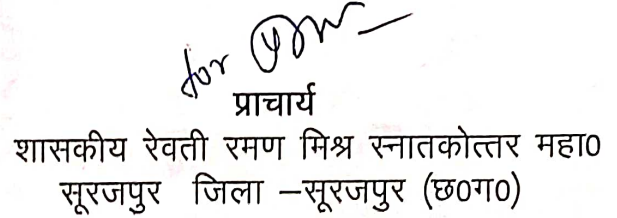 for
प्राचार्य
शासकीय रेवती रमण मिश्र स्नातकोत्तर महा0
सूरजपुर जिला –सूरजपुर (छ0ग0)